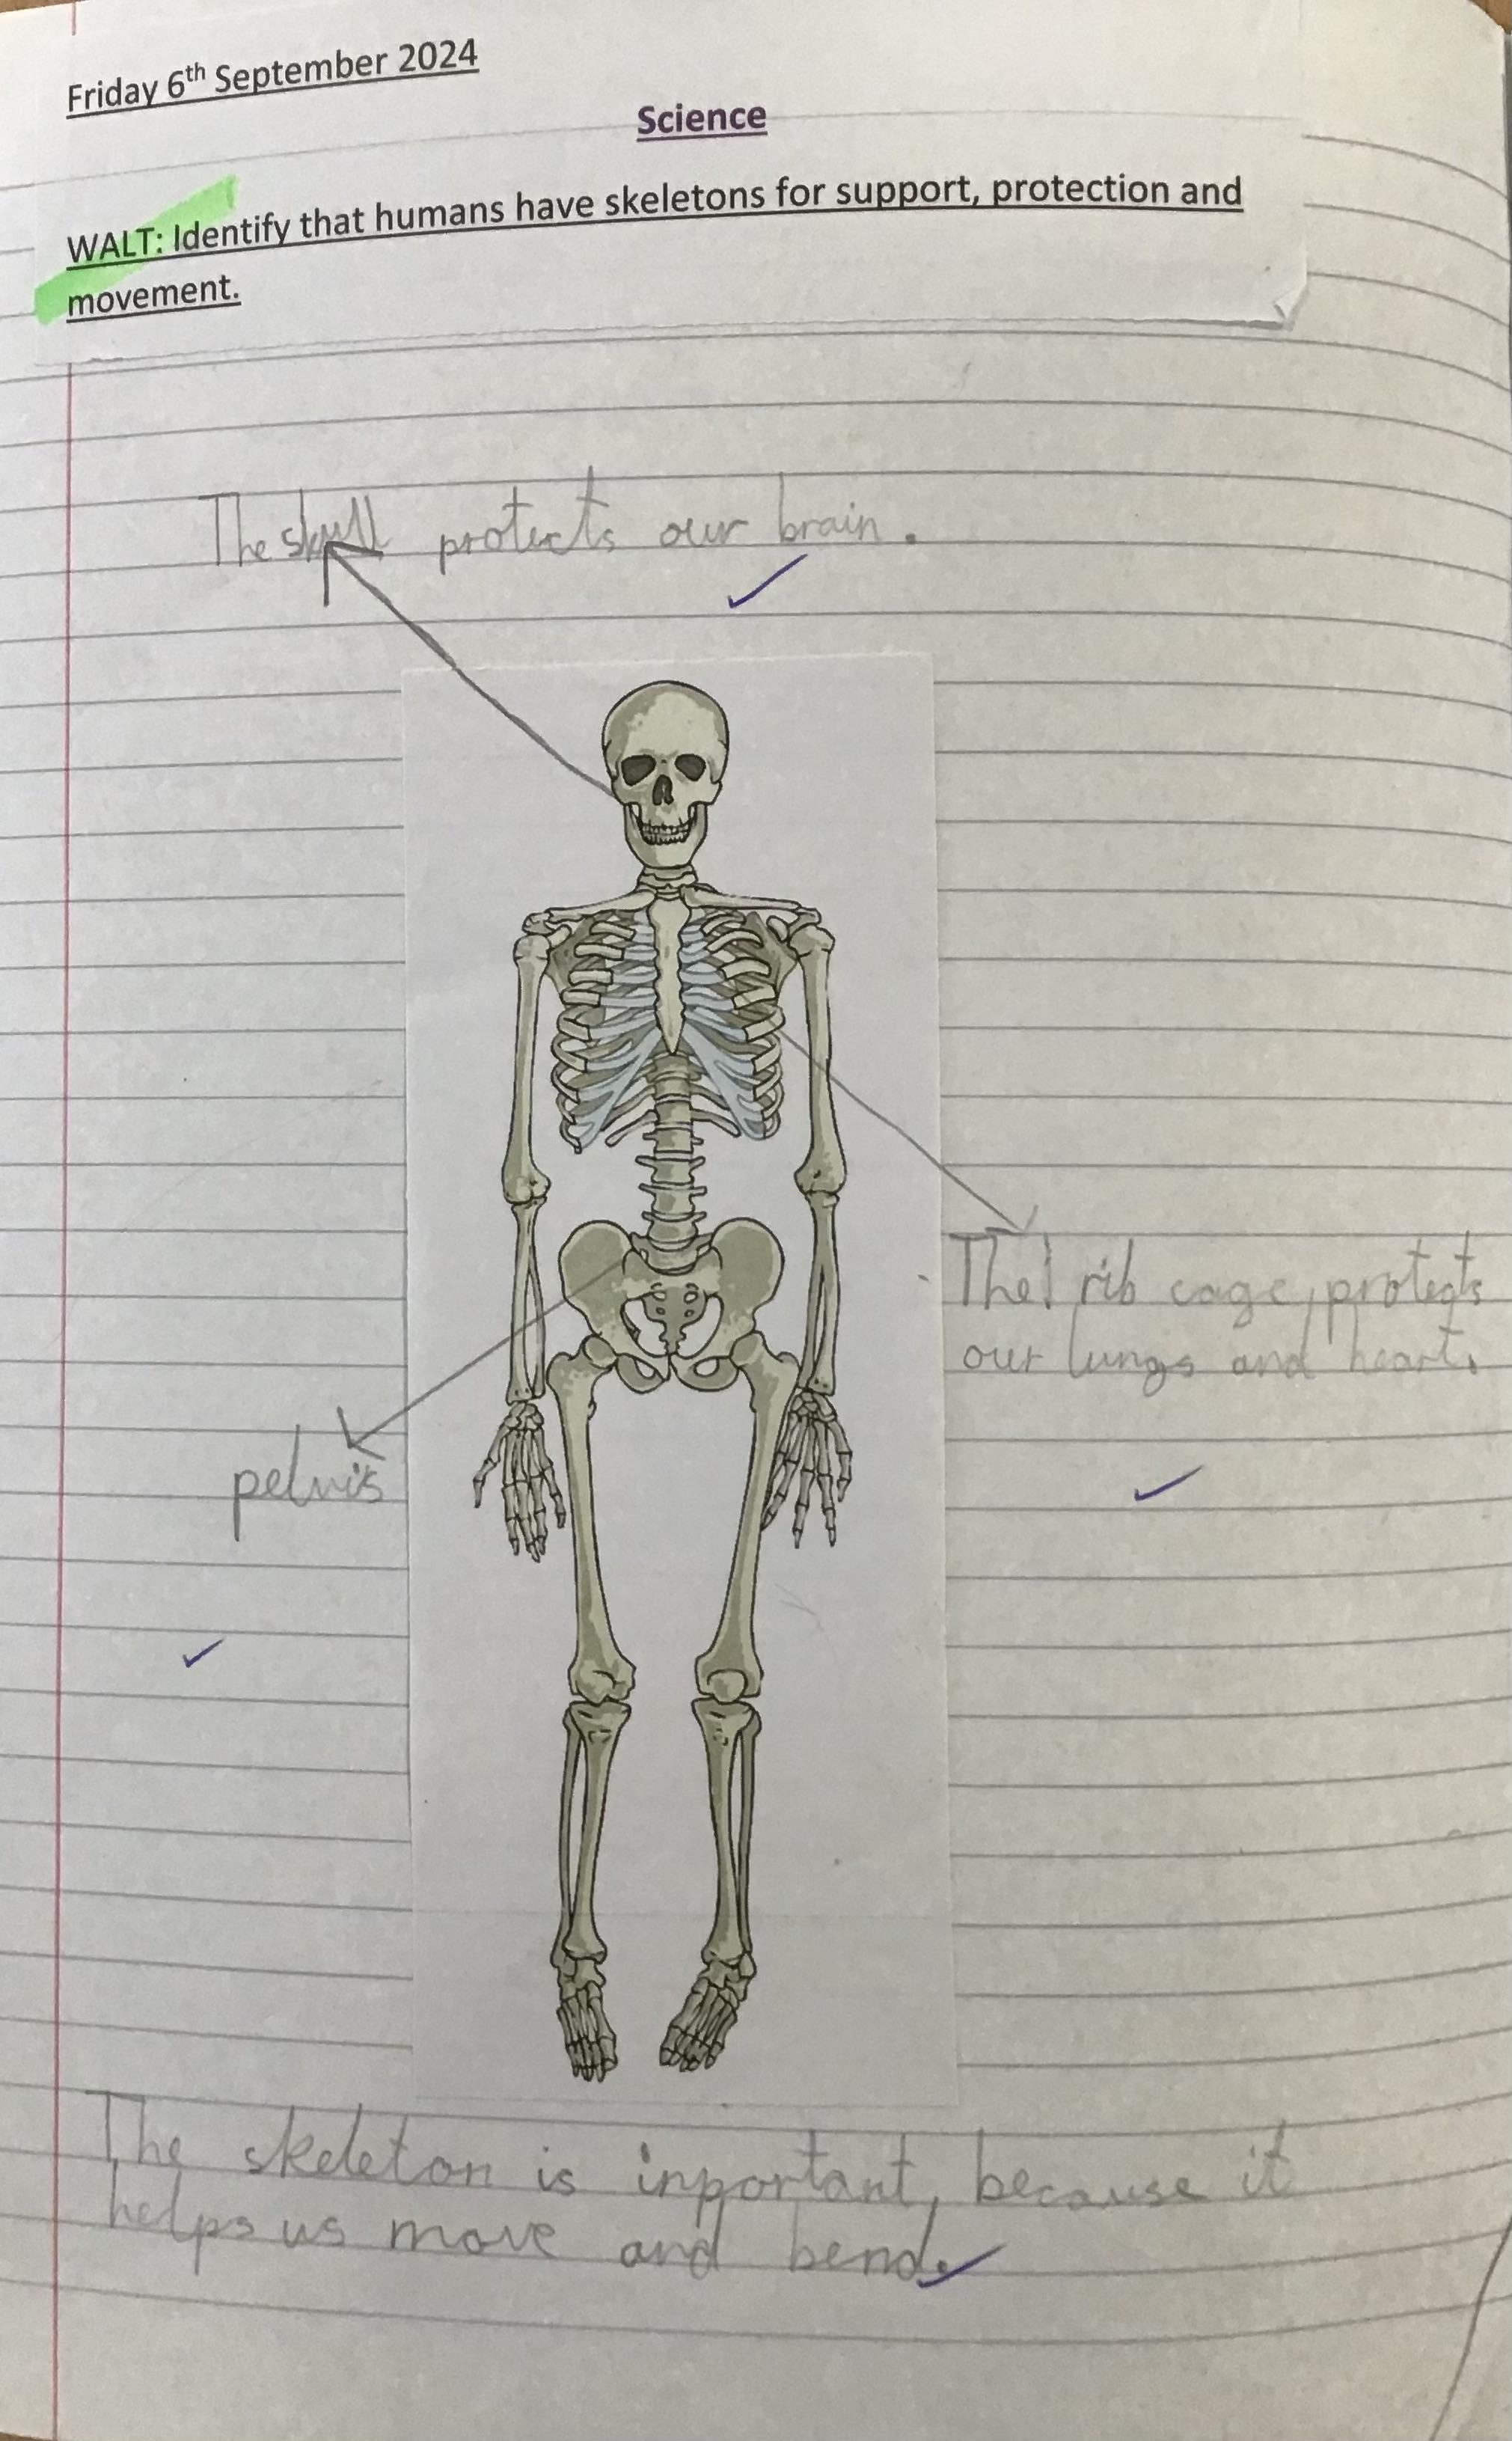 Friday 6th September 2024
Science
WALT: Identify that humans have skeletons for support, protection and
movement.
The skull protects our brain.
The rib cage, protects
our lungs and heart.
pelvis
The skeleton is inportant, because it
helps us move and bend.